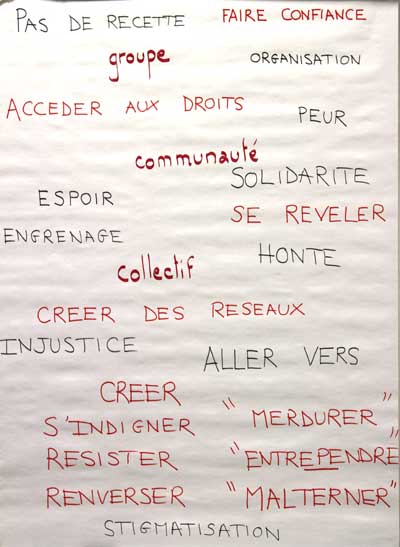 PAS DE RECETTE
FAIRE CONFIANCE
groupe
ORGANISATION
ACCEDER AUX DROITS
PEUR
communauté
SOLIDARITE
ESPOIR
SE REVELER
ENGRENAGE
HONTE
collectif
CREER DES RESEAUX
INJUSTICE
ALLER VERS
CREER
S'INDIGNER
"MERDURER"
RESISTER
"ENTREPENDRE"
RENVERSER
"MALTERNER"
STIGMATISATION